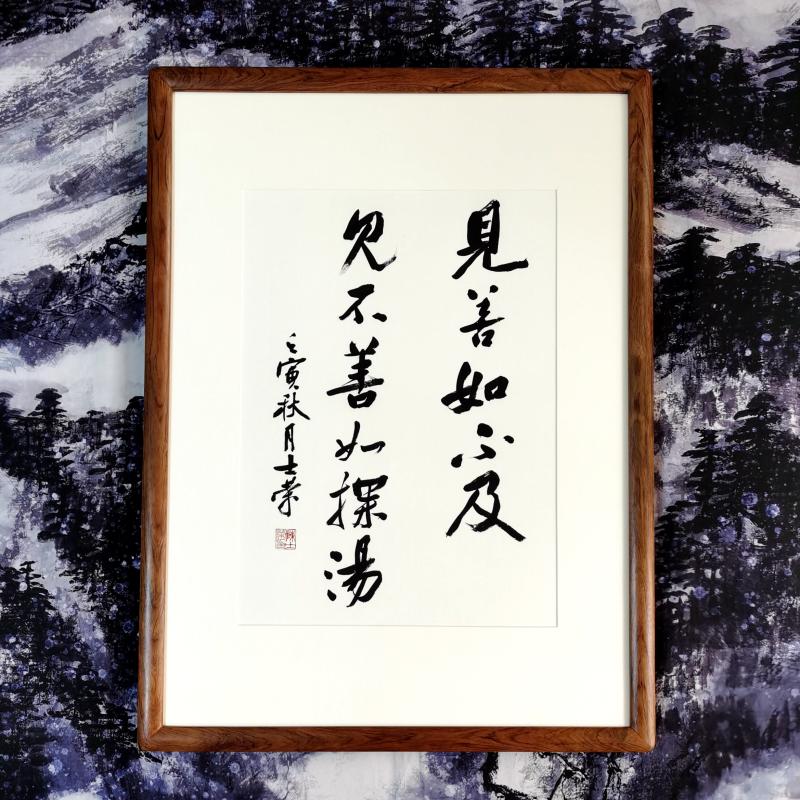 見善如不及
見不善如探湯
壬寅秋月士榮